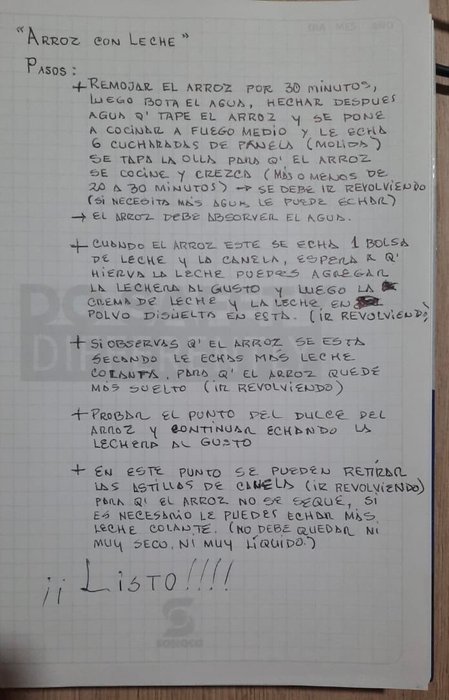 "ARROZ CON LECHE"
PASOS:
+ REMOJAR EL ARROZ POR 30 MINUTOS,
LUEGO BOTA EL AGUA, HECHAR DESPUES
AGUA Q' TAPE EL ARROZ Y SE PONE
A COCINAR A FUEGO MEDIO Y LE ECHA
6 CUCHARADAS DE PANELA (MOLIDA)
SE TAPA LA OLLA PARA Q' EL ARROZ
SE COCINE Y CREZCA (MÁS O MENOS DE
20 A 30 MINUTOS) → SE DEBE IR REVOLVIENDO
(SI NECESITA MÁS AGUA LE PUEDE ECHAR)
→ EL ARROZ DEBE ABSORVER EL AGUA.
+ CUANDO EL ARROZ ESTE SE ECHA 1 BOLSA
DE LECHE Y LA CANELA, ESPERA A Q'
HIERVA LA LECHE PUEDES AGREGAR
LA LECHERA AL GUSTO Y LUEGO LA
CREMA DE LECHE Y LA LECHE EN
POLVO DISUELTA EN ESTA. (IR REVOLVIENDO)
+ SI OBSERVAS Q' EL ARROZ SE ESTA
SECANDO LE ECHAS MÁS LECHE
COLANTA, PARA Q' EL ARROZ QUEDE
MÁS SUELTO (IR REVOLVIENDO)
+ PROBAR EL PUNTO DEL DULCE DEL
ARROZ Y CONTINUAR ECHANDO LA
LECHERA AL GUSTO
+ EN ESTE PUNTO SE PUEDEN RETIRAR
LAS ASTILLAS DE CANELA (IR REVOLVIENDO)
PARA Q' EL ARROZ NO SE SEQUE, SI
ES NECESARIO LE PUEDES ECHAR MÁS
LECHE COLANTE. (NO DEBE QUEDAR NI
MUY SECO, NI MUY LÍQUIDO.)
¡¡ LISTO!!!!